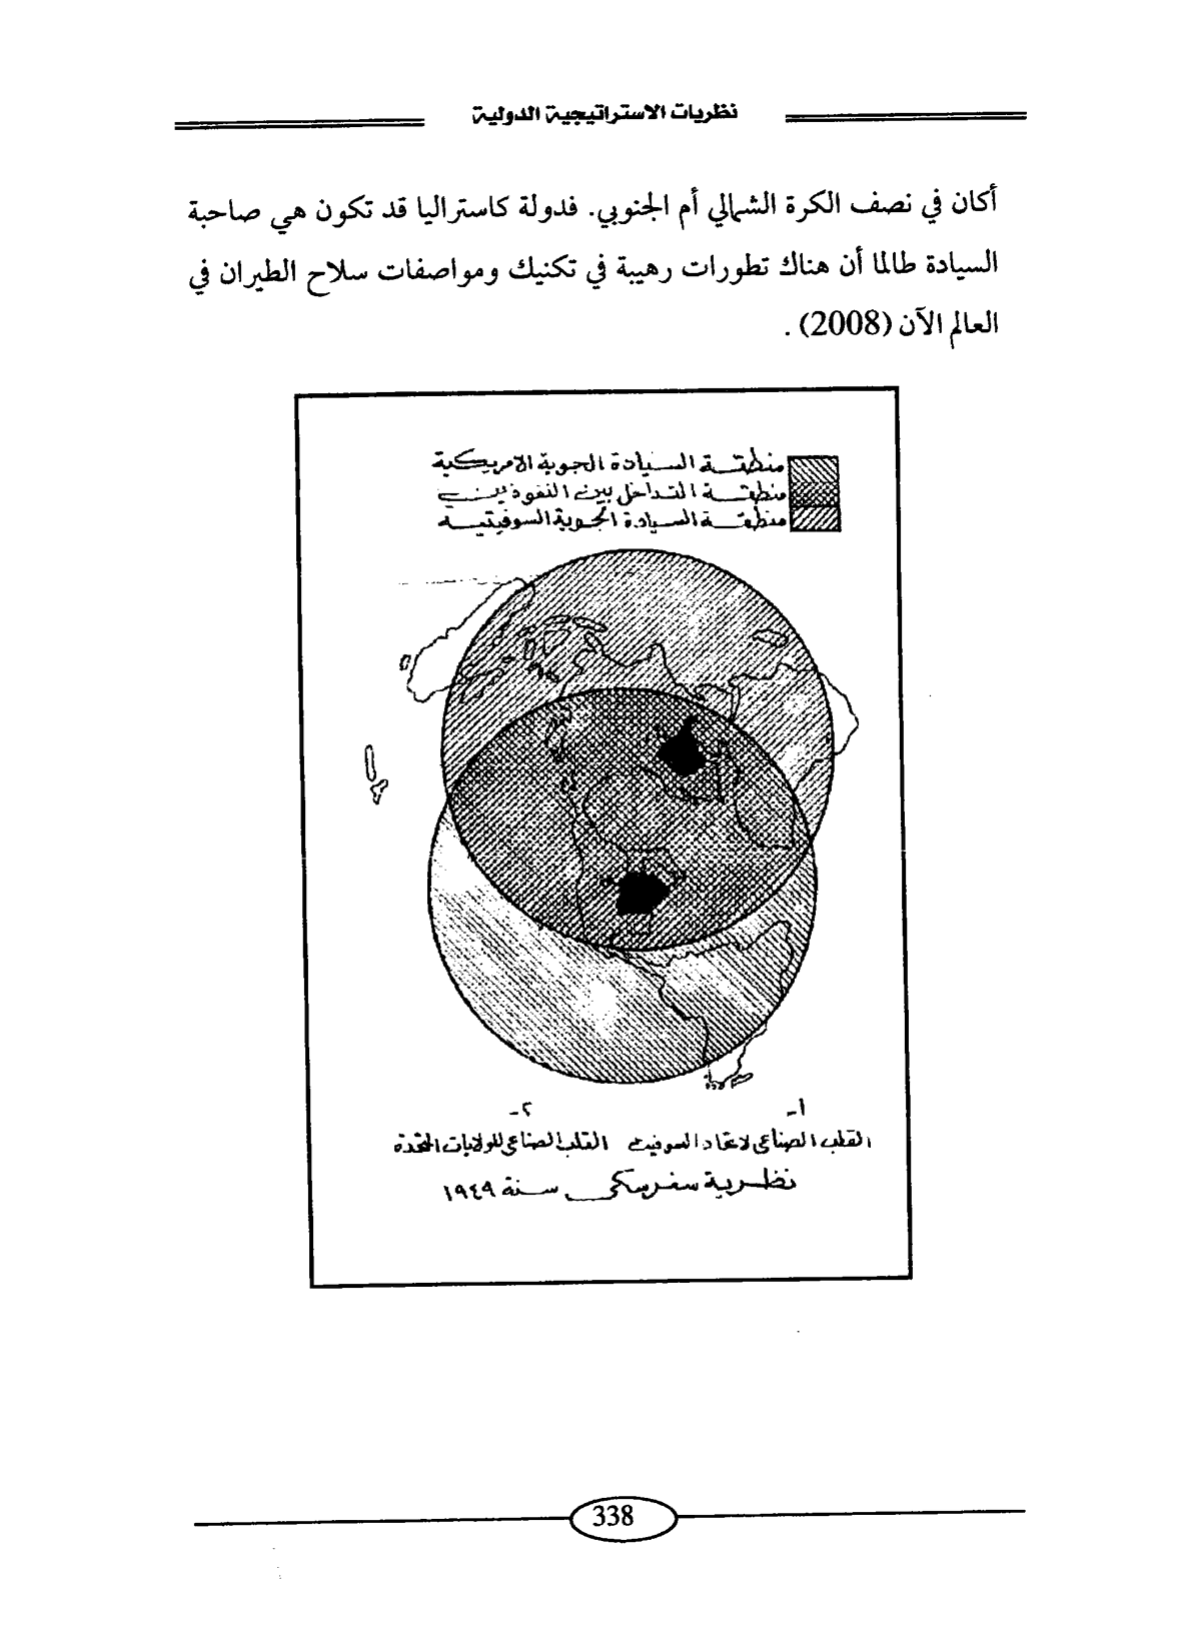 نظريات الاستراتيجية الدولية
أكان في نصف الكرة الشمالي أم الجنوبي. فدولة كاستراليا قد تكون هي صاحبة
السيادة طالما أن هناك تطورات رهيبة في تكنيك ومواصفات سلاح الطيران في
العالم الآن (2008) .
منطقة السيادة الجوية الامريكية
منطقة التداخل بين النفوذين
منطقة السيادة الجوية السوفيتية
١- ٢-
القلب الصناعي لاتحاد السوفيت القلب الصناعي للولايات المتحدة
نظرية سفرسكي سنة ١٩٤٩
338